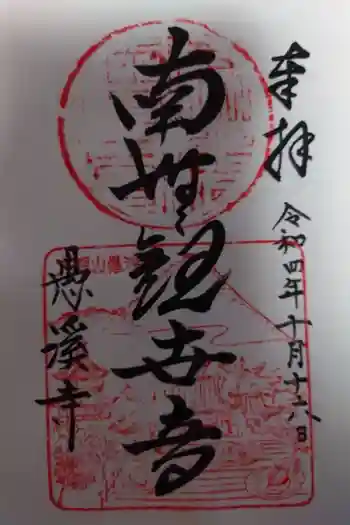 奉拝
令和四年十月十六日
南無観世音
愚溪寺